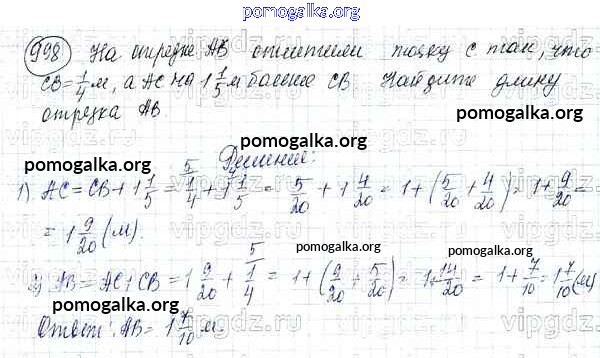 pomogalka.org
998 На отрезке AB отметили точку C так, что
CB = 1/4 м, а AC на 1 1/5 м более CB. Найдите длину
отрезка AB
pomogalka.org
pomogalka.org
Решение:
pomogalka.org
1) AC = CB + 1 1/5 = 1/4 + 1 1/5 = 5/20 + 1 4/20 = 1 + (5/20 + 4/20) = 1 + 9/20 =
= 1 9/20 (м).
pomogalka.org
pomogalka.org
2) AB = AC + CB = 1 9/20 + 1/4 = 1 + (9/20 + 5/20) = 1 + 14/20 = 1 + 7/10 = 1 7/10 (м)
pomogalka.org
pomogalka.org
Ответ: AB = 1 7/10 м.
vipgdz.ru